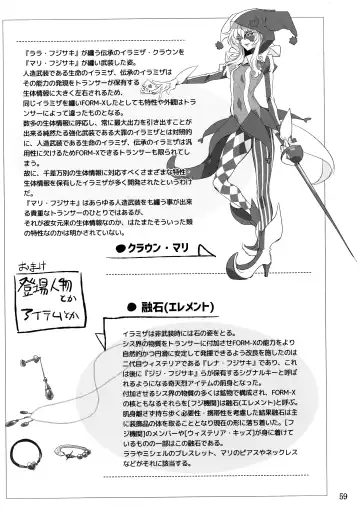 『ララ・フジサキ』が纏う伝承のイラミザ・クラウンを
『マリ・フジサキ』が纏い武装した姿。
人造武装である生命のイラミザ、伝承のイラミザは
その能力の発現をトランサーが保有する
生体情報に大きく左右されるため、
同じイラミザを纏いFORM-Xしたとしても特性や外観はトラ
ンサーによって違ったものとなる。
数多の生体情報に呼応し、常に最大出力を引き出すことが
出来る純然たる強化武装である大罪のイラミザとは対照的
に、人造武装である生命のイラミザ、伝承のイラミザは汎
用性に欠けるためFORM-Xできるトランサーも限られてし
まう。
故に、千差万別の生体情報に対応すべくさまざまな特性・
生体情報を保有したイラミザが多く開発されたというわけ
だ。
『マリ・フジサキ』はあらゆる人造武装をも纏う事が出来
る貴重なトランサーのひとりではあるが、
それが彼女元来の生体情報なのか、はたまたそういった類
の特性なのかは明かされていない。
●クラウン・マリ
おまけ
登場人物
とか
アイテムとか
●融石(エレメント)
イラミザは非武装時には石の姿をとる。
シス界の物質をトランサーに付加させFORM-Xの能力をより
自然的かつ円滑に安定して発揮できるよう改良を施したのは
二代目ウィステリアである『レナ・フジサキ』であり、これ
は後に『ジジ・フジサキ』らが保有するシグナルキーと呼ば
れるようになる奇天烈アイテムの前身となった。
付加させるシス界の物質の多くは鉱物で構成され、FORM-X
の核ともなるそれらを[フジ機関]は融石(エレメント)と呼ぶ。
肌身離さず持ち歩く必要性・携帯性を考慮した結果融石は主
に装飾品の体を取ることとなり現在の形に落ち着いた。[フ
ジ機関]のメンバーや[ウィステリア・キッズ]が身に着けて
いるものの一部はこの融石である。
ララやミシェルのブレスレット、マリのピアスやネックレス
などがそれに該当する。
59